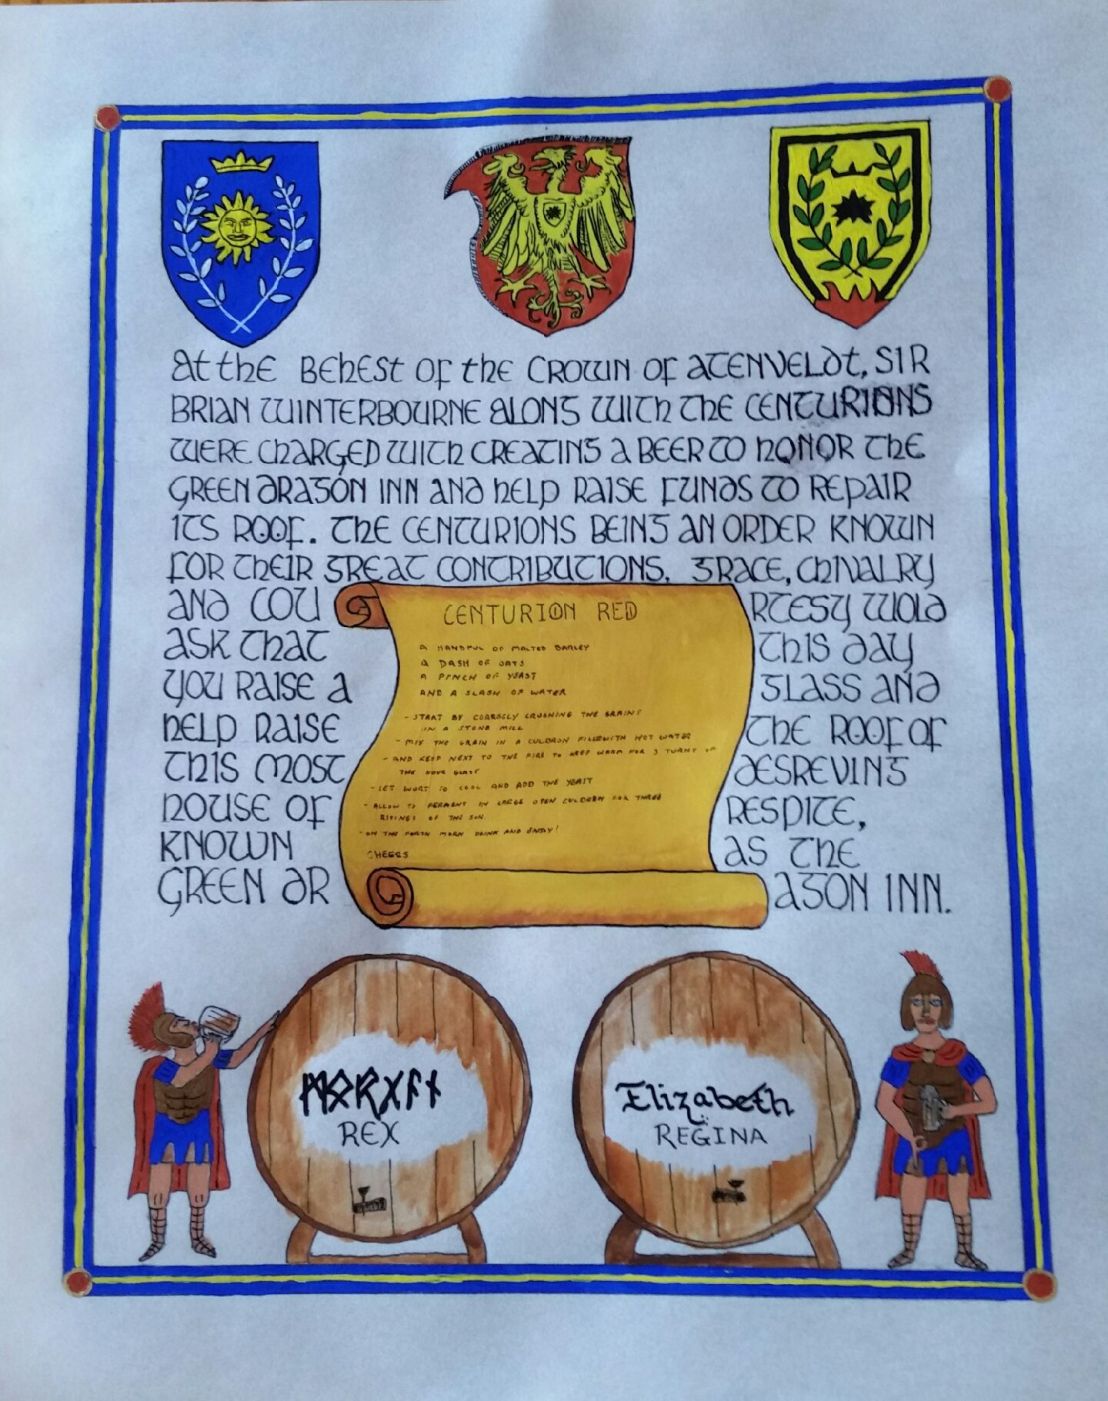 At the BEHEST OF the CROWN OF ATENVELDT, SIR
BRIAN WINTERBOURNE ALONG WITH THE CENTURIONS
WERE CHARGED WITH CREATING A BEER TO HONOR THE
GREEN DRAGON INN AND HELP RAISE FUNDS TO REPAIR
ITS ROOF. THE CENTURIONS BEING AN ORDER KNOWN
FOR THEIR GREAT CONTRIBUTIONS, GRACE, CHIVALRY
AND COU RTESY WOLD
ASK THAT THIS DAY
YOU RAISE A GLASS AND
HELP RAISE THE ROOF OF
THIS MOST DESREVING
HOUSE OF RESPITE,
KNOWN AS THE
GREEN DR AGON INN.
CENTURION RED
A HANDFUL OF MALTED BARLEY
A DASH OF OATS
A PINCH OF YEAST
AND A SLASH OF WATER
- START BY CORRSLY CRUSHING THE GRAINS
IN A STONE MILL
- MIX THE GRAIN IN A CULDRON FILLEWITH HOT WATER
- AND KEEP NEXT TO THE FIRE TO KEEP WARM FOR 3 TURNS OF
THE HOUR GLASS
- LET WORT TO COOL AND ADD THE YEAST
- ALLOW TO FERMENT IN LARGE OPEN CULDRON FOR THREE
RISINGS OF THE SUN.
- ON THE FORTH MORN DRINK AND ENJOY!
CHEERS
ᛗᛟᚱᚷᚨᚾ
REX
Elizabeth
REGINA